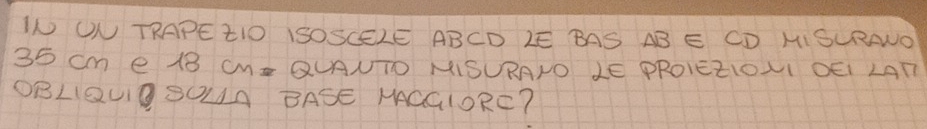 IN UN TRAPEZIO ISOSCELE ABCD LE BAS AB E CD MISURANO
35 cm e 18 cm. QUANTO MISURANO LE PROIEZIONI DEI LATI
OBLIQUI SULLA BASE MAGGIORE?